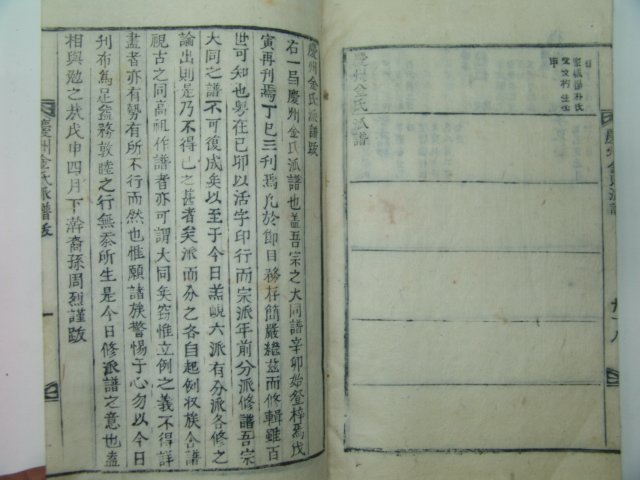 慶州金氏派譜
慶州金氏派譜
慶州金氏派譜跋
右一呂慶州金氏派譜也盖吾宗之大同譜辛卯始登梓焉戊
寅再刊焉丁巳三刊焉凡於節目務存簡嚴繼玆而修輯雖百
世可知也粤在己卯以活字印行而宗派年前分派修譜吾宗
大同之譜不可復成矣以至于今日羔峴六派有分派各修之
論出則是乃不得已之甚者矣派而分之各自起例収族合譜
視古之同高祖作譜者亦可謂大同矣窃惟立例之義不得詳
盡者亦有勢有所不行而然也惟願諸族警惕于心勿以今日
刊布爲足益務敦睦之行無忝所生是今日修派譜之意也盍
相與勉之㢤戊申四月下澣裔孫周烈謹跋
慶州金氏派譜跋
一